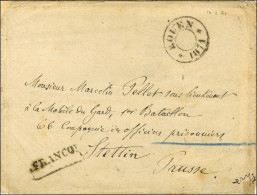 ROUEN
1871
Monsieur Marcelin Pellet sous lieutenant
à la Mobile du Gard, 1er Bataillon
6e Compagnie des officiers prisonniers
FRANCO
Stettin
Prusse